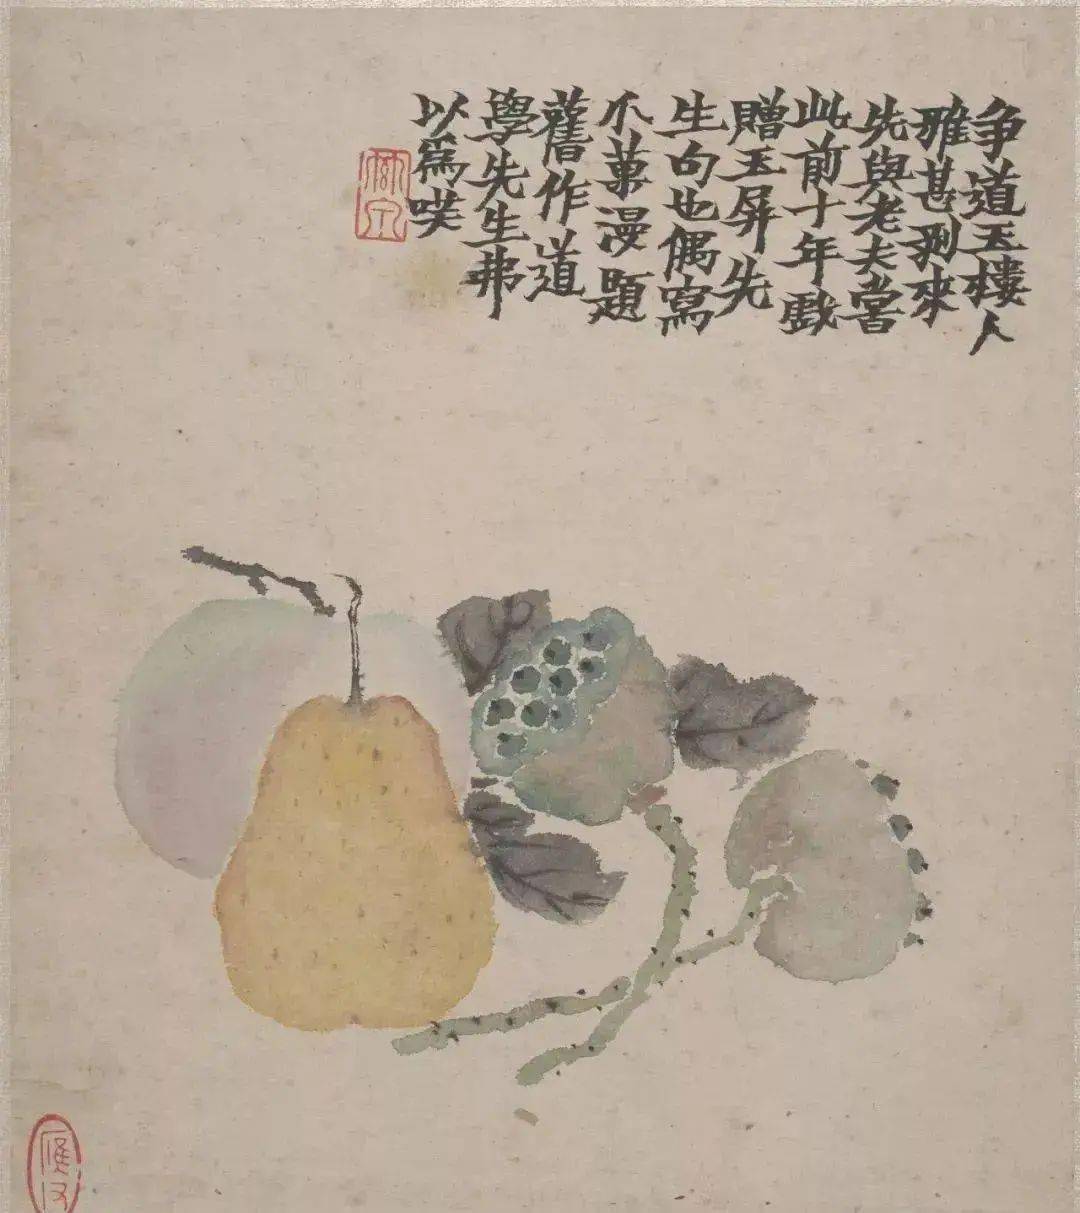 争道玉樓人
雅甚剥來
先與老夫嘗
此前十年戲
贈玉屏先
生句也偶寫
爪菓漫題
舊作道
學先生弗
以爲噗